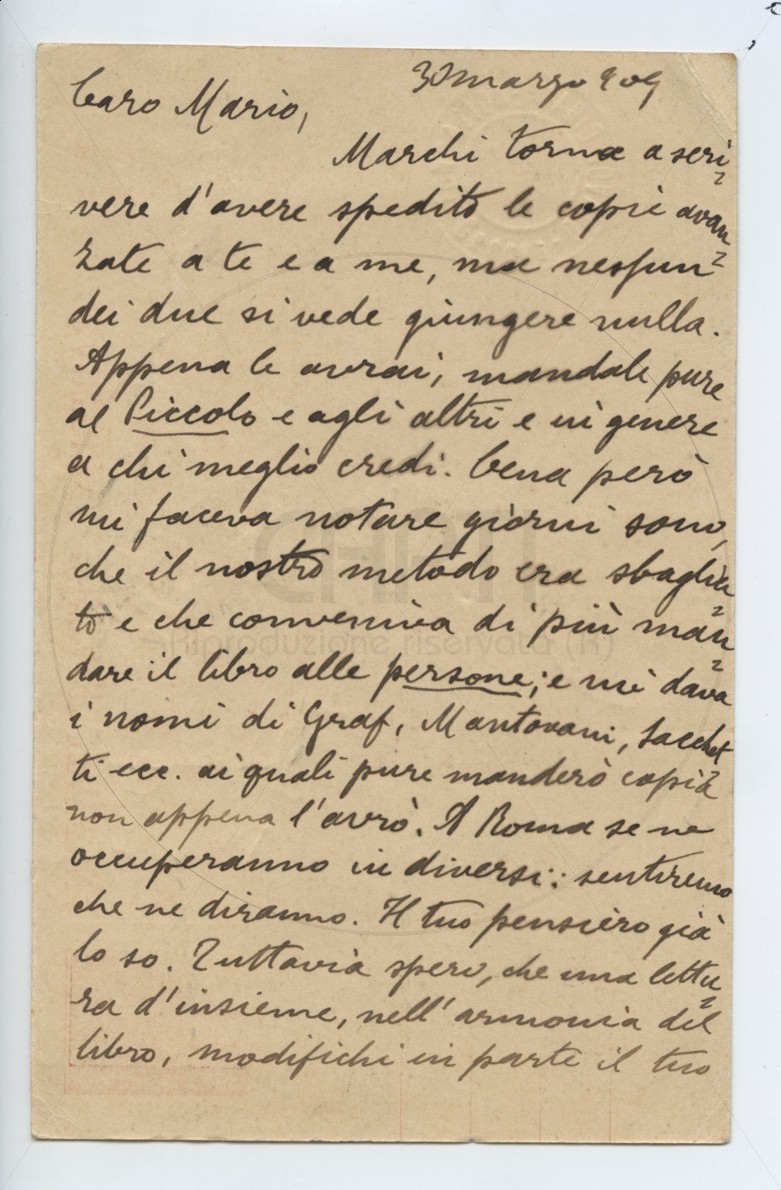 30 marzo 909
Caro Mario,
Marchi torna a scri=
vere d'avere spedito le copie avan=
zate a te e a me, ma nessun=
dei due si vede giungere nulla.
Appena le avrai, mandale pure
al Piccolo e agli altri e in genere
a chi meglio credi. Cena però
mi faceva notare giorni sono,
che il nostro metodo era sbaglia=
to e che conveniva di più man=
dare il libro alle persone; e mi dava
i nomi di Graf, Mantovani, Sacchet
ti ecc. ai quali pure manderò copia
non appena l'avrò. A Roma se ne
occuperanno in diversi: sentiremo
che ne diranno. Il tuo pensiero già
lo so. Tuttavia spero, che una lettu=
ra d'insieme, nell'armonia del
libro, modifichi in parte il tuo
riproduzione riservata (R)